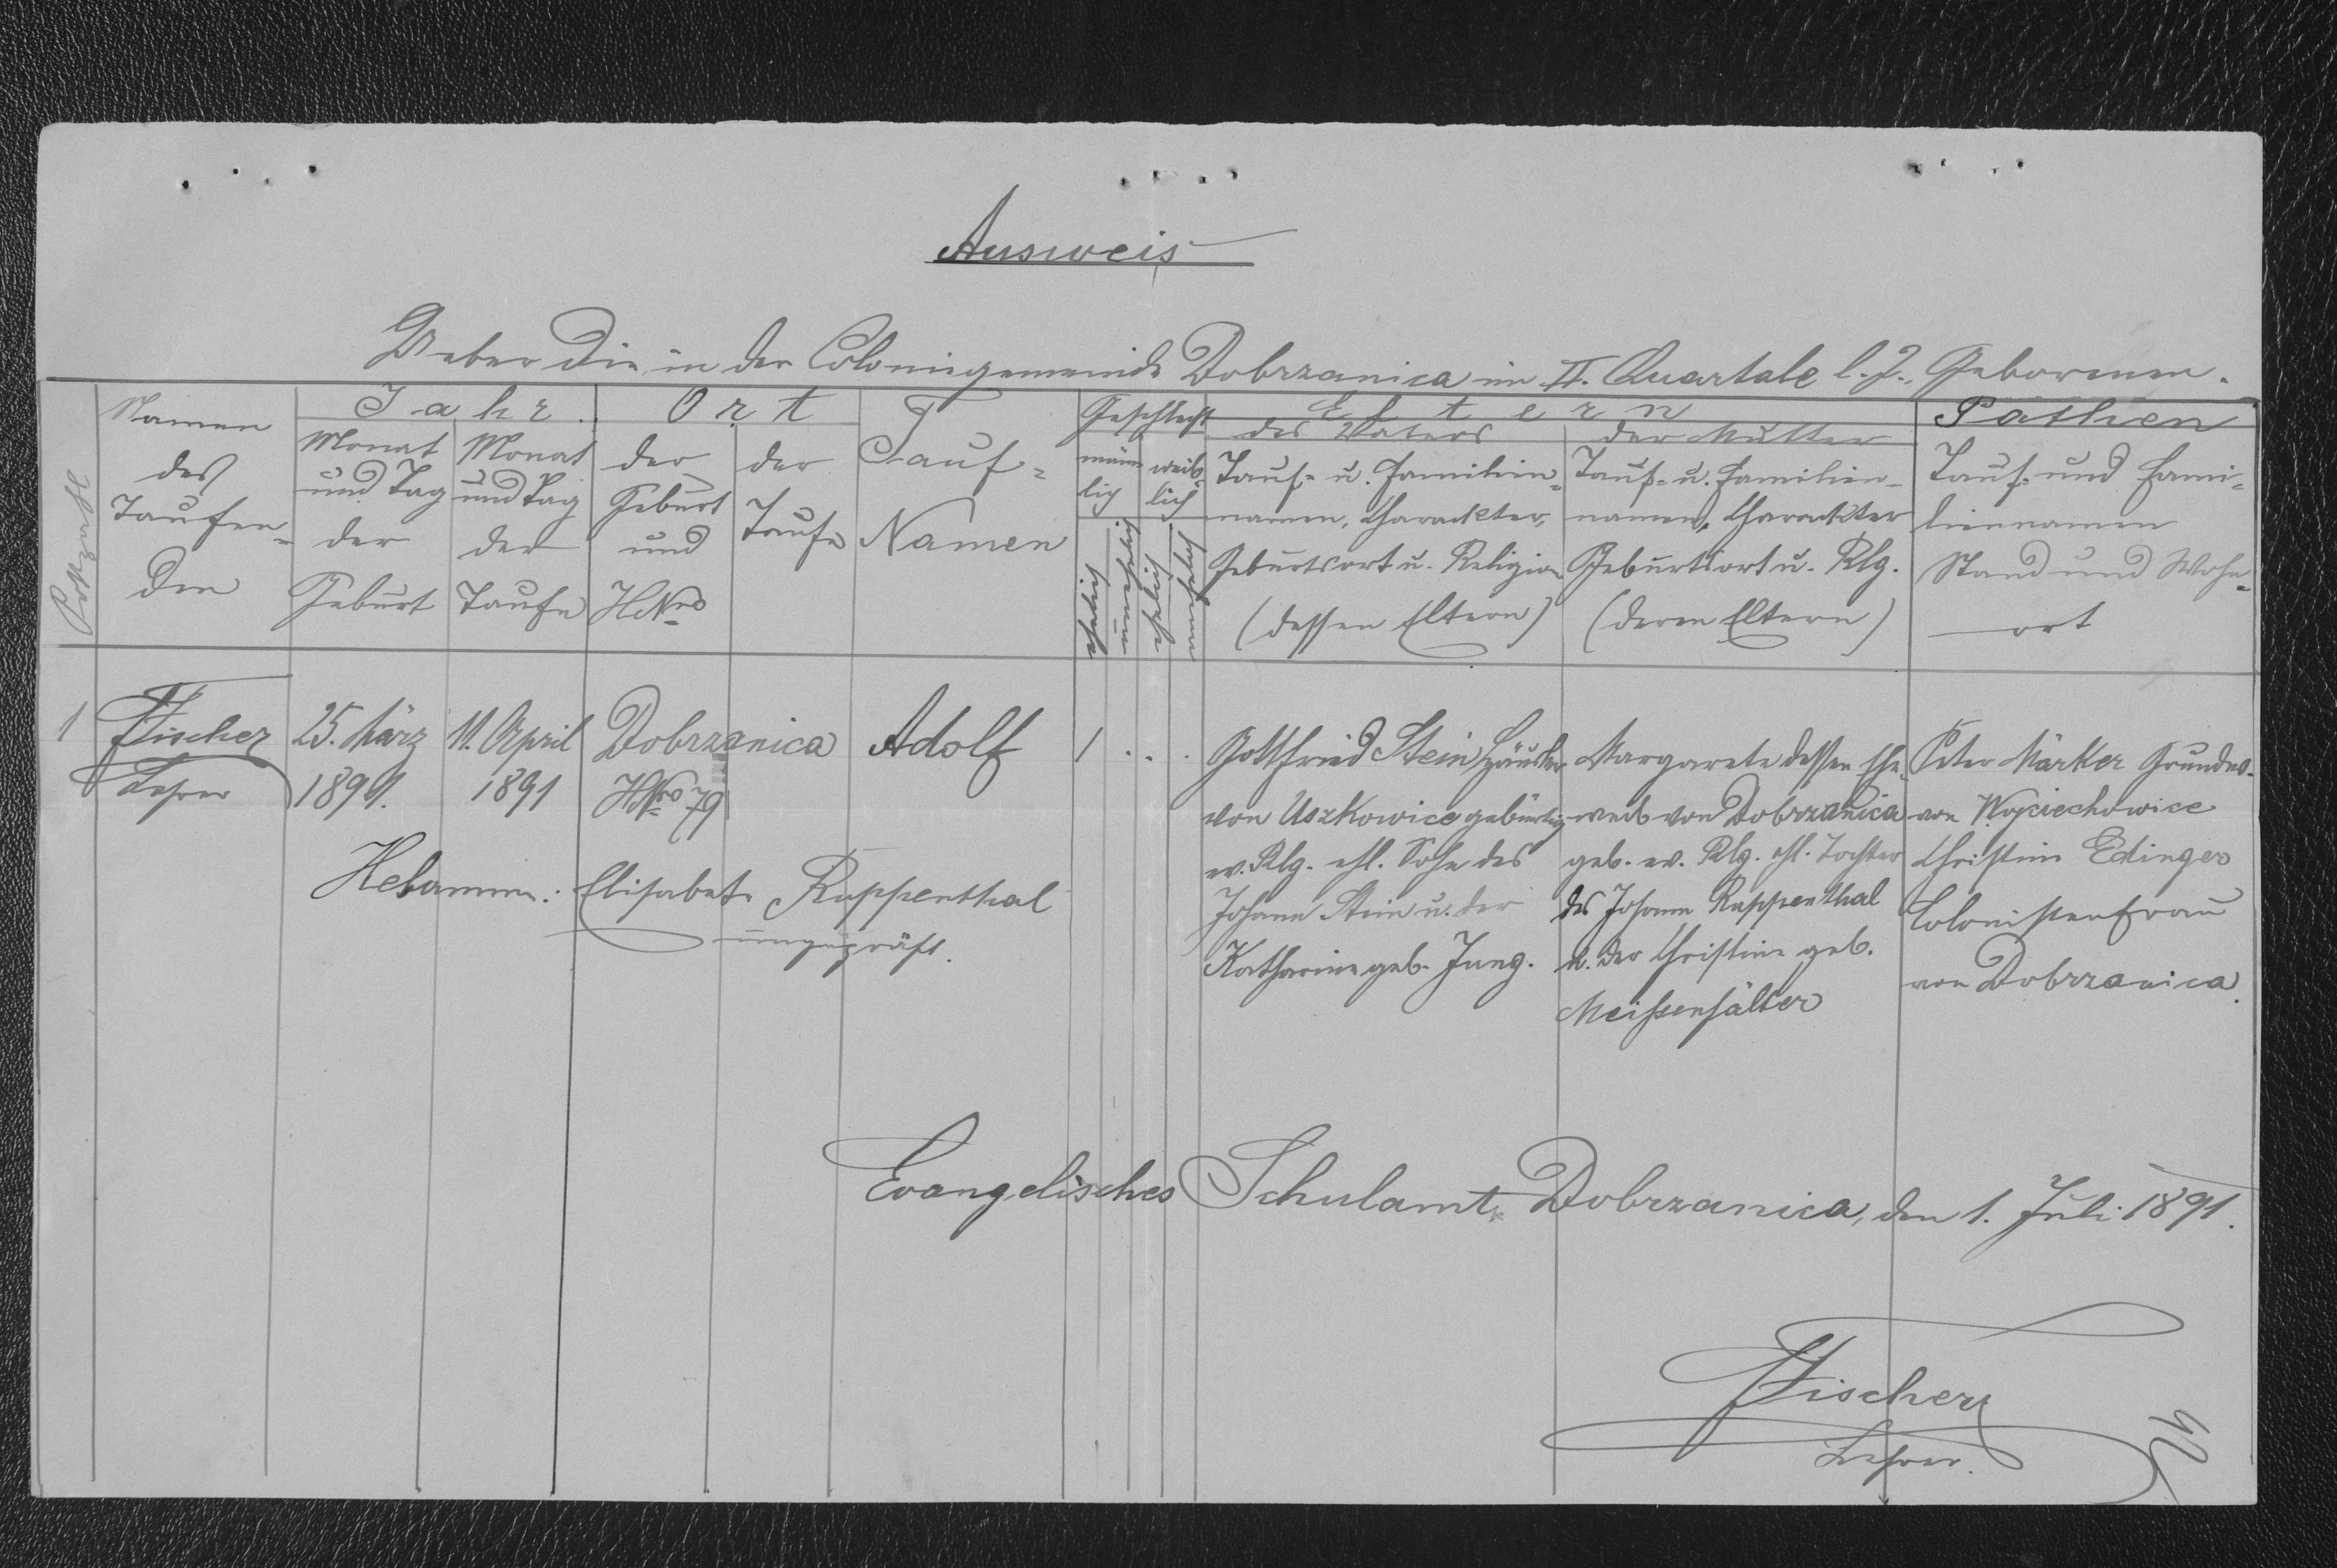 Ausweis
Ueber die in der Coloniegemeinde Dobrzanica im II. Quartale l. J. Geborenen.
Postzahl
Namen
des
Taufen-
den
Jahr
Monat
und Tag
der
Geburt
Monat
und Tag
der
Taufe
Ort
der
Geburt
und
HNro
der
Taufe
Tauf-
Namen
Geschlecht
männ
lich
weib
lich
ehelich
unehelich
ehelich
unehelich
Eltern
des Vaters
Tauf- u. Familien-
namen, Charackter,
Geburtsort u. Religion
(dessen Eltern)
der Mutter
Tauf- u. Familien-
namen, Charackter
Geburtsort u. Rlg.
(deren Eltern)
Pathen
Tauf- und Fami-
liennamen
Stand und Wohn-
ort
1
Fischer
Lehrer
25. März
1891.
11. April
1891
Dobrzanica
HNro 79
Adolf
1 . . .
Gottfried Stein Häusler
von Uszkowice gebürtig
ev. Rlg. ehl. Sohn des
Johann Stein u. der
Katharine geb. Jung.
Margarete dessen Ehe-
weib von Dobrzanica
geb. ev. Rlg. ehl. Tochter
des Johann Ruppenthal
u. der Christine geb.
Meißenhälter
Peter Märker Grundw.
von Wojciechowice
Christine Edinger
Colonistenfrau
von Dobrzanica.
Hebamme: Elisabet Ruppenthal
ungeprüft.
Evangelisches Schulamt Dobrzanica, den 1. Juli 1891.
Fischer
Lehrer.